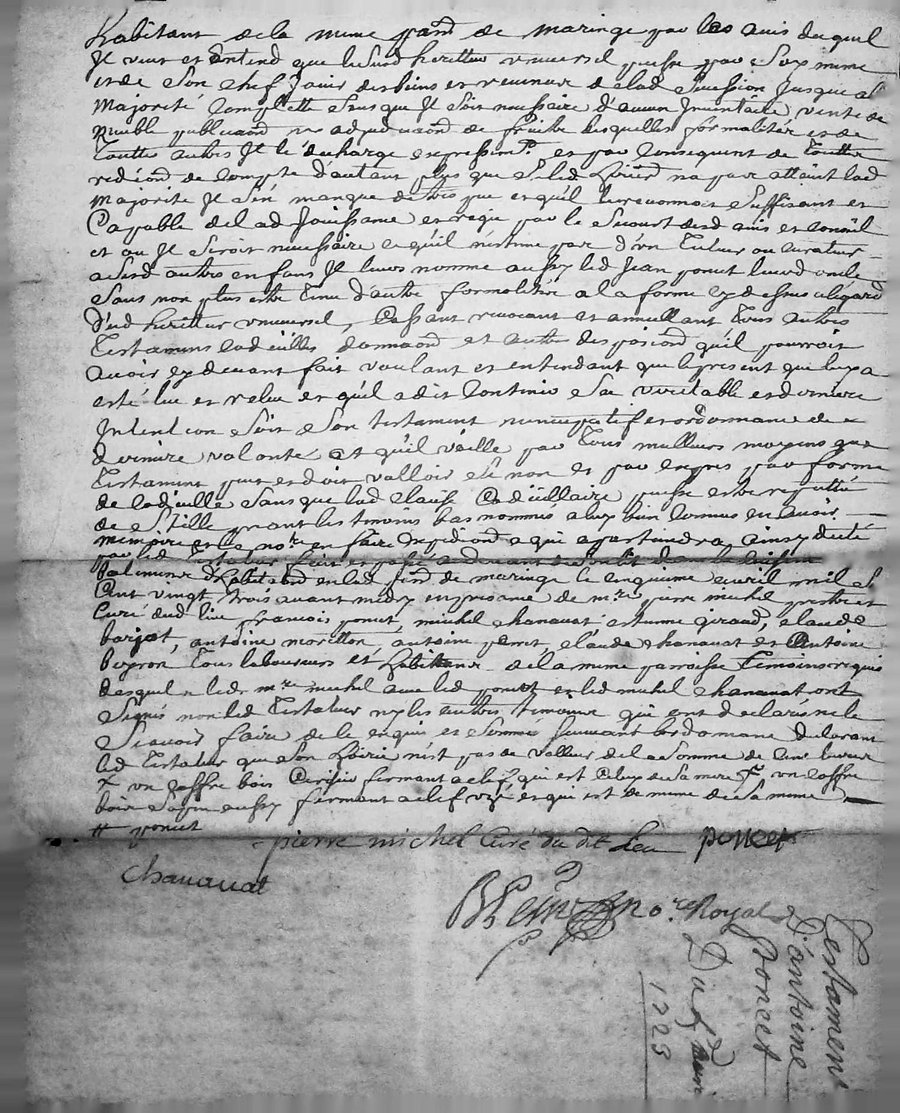 habitant de la mime parred de maringe par les avis duquel
Il veut et entend que lesusd heritier universel puisse par soy mime
et de son chef Jouir des biens et revenus de lad sucession Jusque a
majorité complette sans que Il soit necessaire d'aucun Inventaire vente de
meuble publicaõnd ne adjudicaõnd de fruits lesquelles formalités et de
Touttes autres Il le decharge expressem.t et par Consequent de Toutte
redõnd de Compte d'autant plus que si led heritier na pas attaint lad
majorité Il s'en manque de tres peu et qu'il le reconnoit suffisant et
Capable de lad Jouissance et regie par le secours desd avis et conseil
et ou Il seroit necessaire ce qu'il n'estime pas d'un Tuteur ou curateur
a sesd autres enfans Il leurs nomme aussy led Jean poncet leurd oncle
sans non plus estre tenu d'autre formalitées a la forme cy dessus a legard
dud heritier universel, Cassant revocant et annullant Tous autres
Testamens codicilles donnaõnd et autres disposiõnd qu'il pourroit
avoir cy devant fait voulant et entendant que le present que luy a
esté lue et relue et qu'il a dit contenir sa veritable et derniere
Intention soit son testament nuncupatif et ordonnance de
derniere volonté et qu'il vaille par Tous meilleurs moyens que
Testament peut et doit valloir sinon et par exprès par forme
de codicille sans que lad clause Codicillaire puisse estre reputtée
de stille priant les tmoins bas nommés a luy bien connus en avoir
memoire et le no.re en faire Expediõnd a qui apartiendra ainsy dicté
par led testateur fait et passé
domicille d'habitaõnd en led fond de maringe le cinquieme avril mil
Cent vingt trois avant midy en presence de m.re pierre michel prestre et
Curé dud lieu francois poncet, michel chanavat estienne giraud, claude
barjot, antoine morillon, antoine peret, claude chanavat et Antoine
beyron Tous laboureurs et habitans de la mime parroisse Temoins requis
desquels led m.re michel avec led poncet et led michel chanavat ont
signés non led Testateur ny les autres temoins qui ont declarés ne le
scavoir faire de ce enquis et sommé suivant lordonnance declarant
led Testateur que son hoirie n'est pas de valleur de la somme de livres
+ un coffre bois Cerisier fermant a clef qui est Celuy de sa mere + un coffre
bois sapin aussy fermant a clef et qui est de mime de sa mime
# poncet
pierre michel Curé du dit Leu poncet
Chanavat
no.re Royal
Testament
D'antoine
Poncet
Du 5
1723